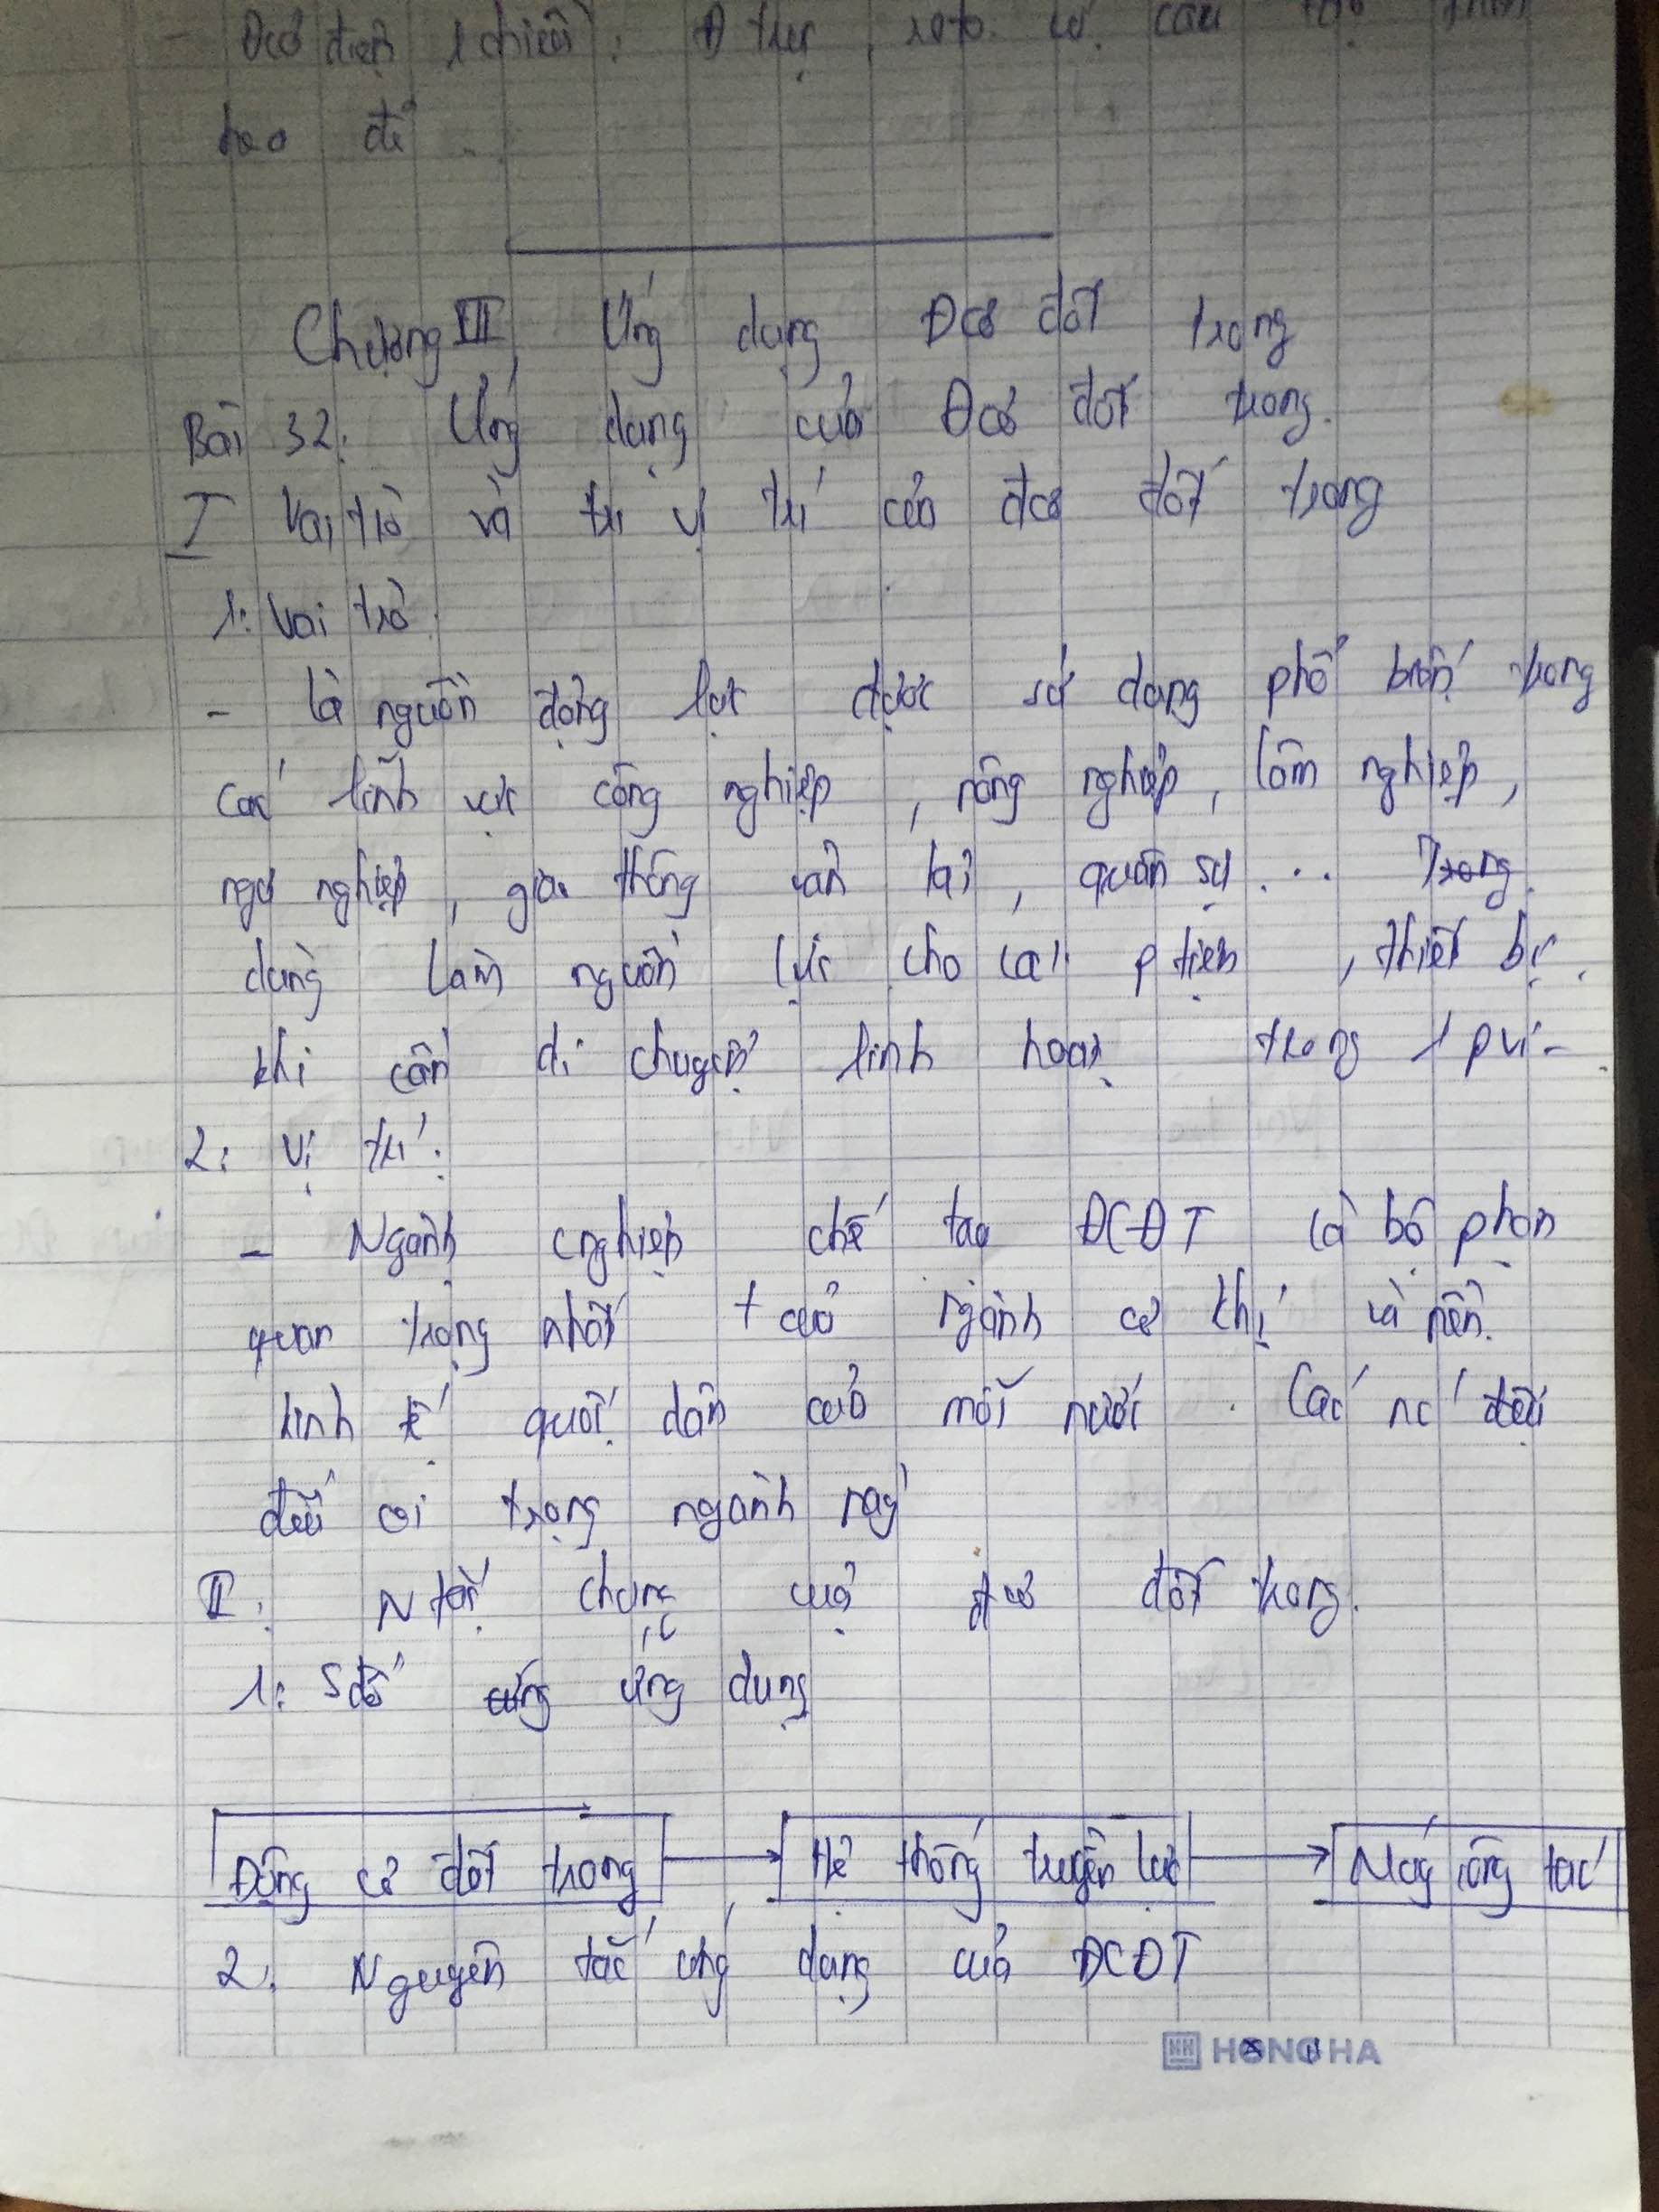 - Đcơ điện 1 chiều: trục, roto. có cấu
Chương III, Ứng dụng Đcơ đốt trong
Bài 32: Ứng dụng của Đcơ đốt trong.
I Vai trò và trí vị trí của đcơ đốt trong
1: Vai trò.
- là nguồn động lực được sử dụng phổ biến trong
các lĩnh vực công nghiệp, nông nghiệp, lâm nghiệp,
ngư nghiệp, giao thông vận tải, quân sự... Trong
dùng làm nguồn lực cho các p tiện, thiết bị.
khi cần di chuyển linh hoạt trong 1 pvi-
2: Vị trí:
- Ngành cnghiệp chế tạo ĐCĐT là bộ phận
quan trọng nhất của ngành cơ khí và nền.
kinh tế quốc dân của mỗi nước. Các nc đều
đều coi trọng ngành này
II: Ntắc chung của đcơ đốt trong.
1: Sđồ ứng dụng
Động cơ đốt trong → Hệ thống truyền lực → Máy công tác
2. Nguyên tắc ứng dụng của ĐCĐT
HONG HA